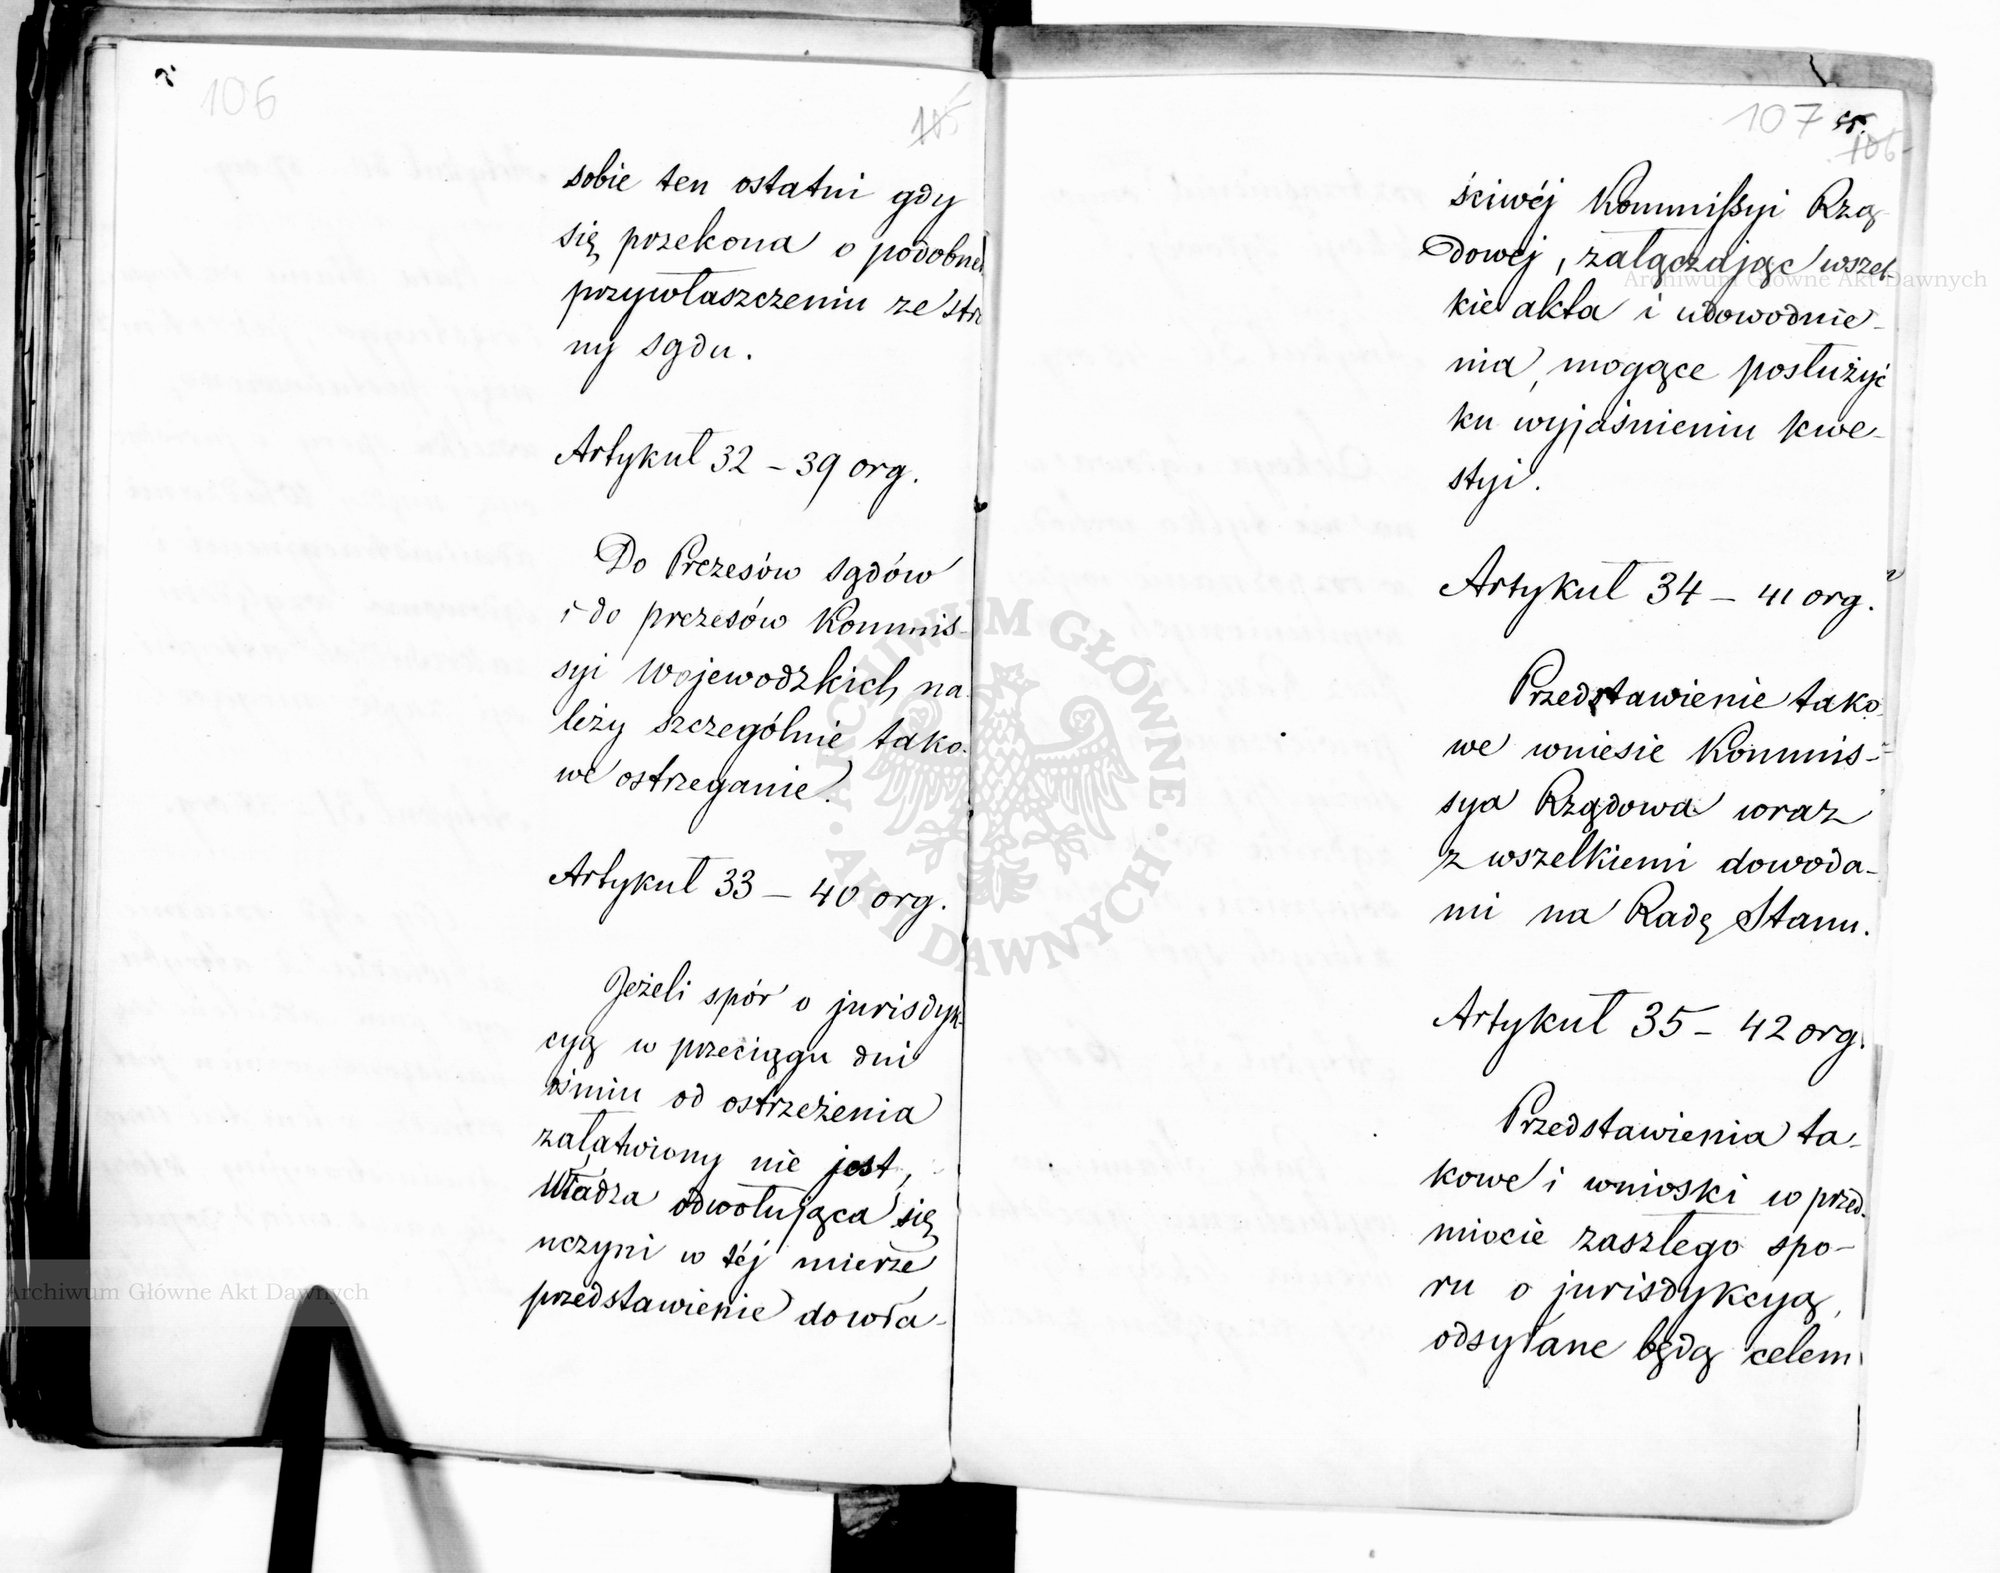 106
105
sobie ten ostatni gdy
się przekona o podobném
przywłaszczeniu ze stro
ny sądu.
Artykuł 32 – 39 org.
Do Prezesów sądów
i do prezesów Kommis-
syi Wojewodzkich na-
leży szczególnie tako-
we ostrzeganie.
Artykuł 33 – 40 org.
Jeżeli spór o jurisdyk-
cyą w przeciągu dni
ośmiu od ostrzeżenia
załatwiony nie jest,
Władza odwołująca się
uczyni w téj mierze
przedstawienie do wła-
107
106
ściwéj Kommissyi Rzą-
dowéj, załączając wszel-
kie akta i udowodnie-
nia, mogące posłużyć
ku wyjaśnieniu kwe-
styi.
Artykuł 34 – 41 org.
Przedstawienie tako-
we wniesie Kommis-
sya Rządowa wraz
z wszelkiemi dowoda-
mi na Radę Stanu.
Artykuł 35 – 42 org.
Przedstawienia ta-
kowe i wnioski w przed-
miocie zaszłego spo-
ru o jurisdykcyą,
odsyłane będą celem
ARCHIWUM GŁÓWNE
AKT DAWNYCH
Archiwum Główne Akt Dawnych
Archiwum Główne Akt Dawnych